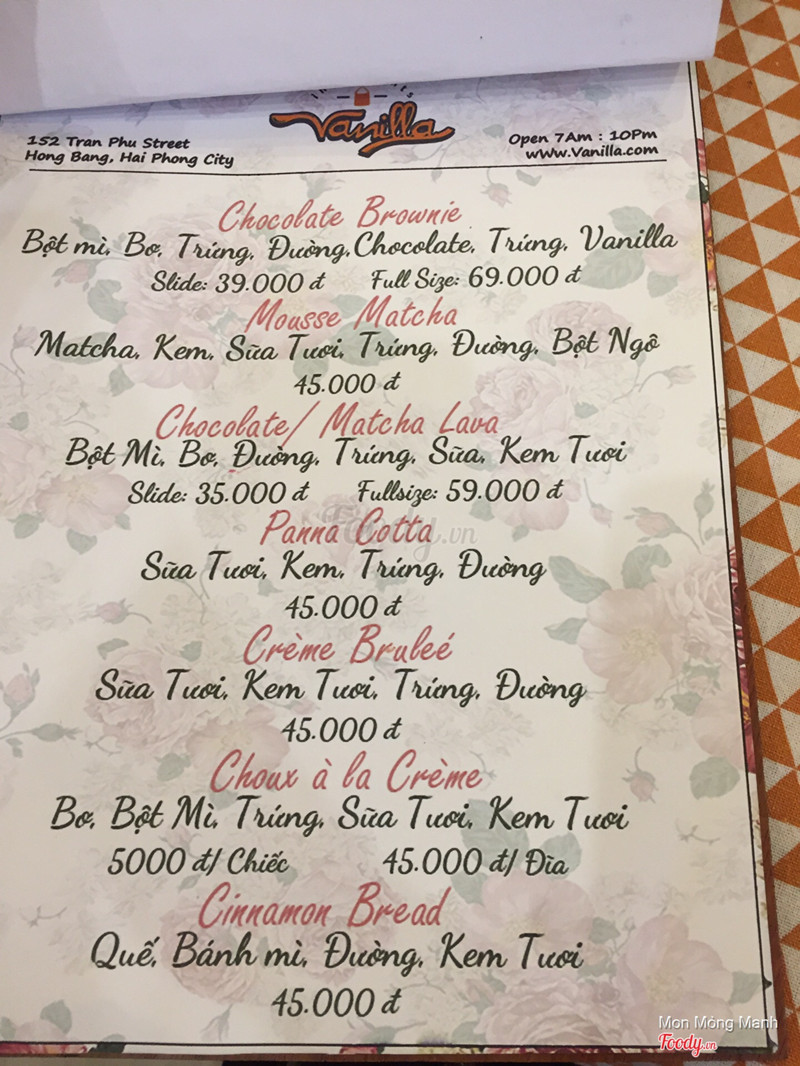 Vanilla
152 Tran Phu Street
Hong Bang, Hai Phong City
Open 7Am : 10Pm
www.Vanilla.com
Chocolate Brownie
Bột mì, Bơ, Trứng, Đường, Chocolate, Trứng, Vanilla
Slide: 39.000 đ Full Size: 69.000 đ
Mousse Matcha
Matcha, Kem, Sữa Tươi, Trứng, Đường, Bột Ngô
45.000 đ
Chocolate/ Matcha Lava
Bột Mì, Bơ, Đường, Trứng, Sữa, Kem Tươi
Slide: 35.000 đ Fullsize: 59.000 đ
Panna Cotta
Sữa Tươi, Kem, Trứng, Đường
45.000 đ
Crème Bruleé
Sữa Tươi, Kem Tươi, Trứng, Đường
45.000 đ
Choux à la Crème
Bơ, Bột Mì, Trứng, Sữa Tươi, Kem Tươi
5000 đ/ Chiếc 45.000 đ/ Đĩa
Cinnamon Bread
Quế, Bánh mì, Đường, Kem Tươi
45.000 đ
Mon Mỏng Manh
Foody.vn